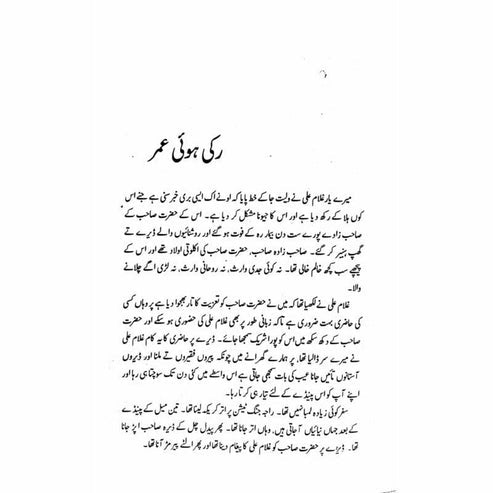 رکی ہوئی عمر
میرے یار غلام علی نے ولیت جا کے خط پایا کہ اونے اک ایسی بری خبر سنی ہے جنے اس
کوں ہلا کے رکھ دیا ہے اور اس کا جیونا مشکل کر دیا ہے۔ اس کے حضرت صاحب کے
صاحب زادے پورے ست دن بیمار رہ کے فوت ہو گئے اور روشنائیوں والے ڈیرے تے
گھپ ہنیر کر گئے۔ صاحب زادہ صاحب، حضرت صاحب کی اکلوتی اولاد تھے اور اس کے
پیچھے سب کچھ خالم خالی تھا۔ نہ کوئی جدی وارث، نہ روحانی وارث، نہ لڑی اگے چلانے
والا۔
غلام علی نے لکھیا تھا کہ میں نے حضرت صاحب کو تعزیت کا تار بھجوا دیا ہے پر وہاں کسی
کی حاضری بہت ضروری ہے تاکہ زبانی طور پر بھی غلام علی کی حضوری ہو سکے اور حضرت
صاحب کے دکھ سکھ میں اس کو پورا شریک سمجھا جائے۔ ڈیرے پر حاضری کا یہ کام غلام علی
نے میرے سر ڈالیا تھا، پر ہمارے گھرانے میں چونکہ پیروں فقیروں تے ملنا اور ڈیروں
آستانوں تائیں جانا عیب کی بات سمجھی جاتی ہے اس واسطے میں کئی دن تک سوچتا ہی رہا اور
اپنے آپ کو اس پینڈے کے لئے تیار ہی کرتا رہا۔
سفر کوئی زیادہ لمبا نہیں تھا۔ راجہ جنگ سٹیشن پر اتر کر یکہ لینا تھا۔ تین میل کے پینڈے
کے بعد جہاں نیائیاں آ جاتی ہیں، وہاں اتر جانا تھا۔ پھر پیدل چل کے ڈیرہ صاحب اپڑ جانا
تھا۔ ڈیرے پر حضرت صاحب کو غلام علی کا پیغام دینا تھا اور پھر الٹے پیر مڑ آنا تھا۔